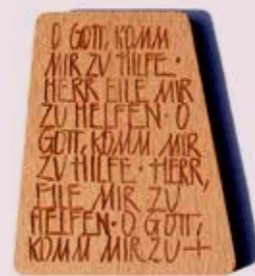 O GOTT, KOMM
MIR ZU HILFE ·
HERR EILE MIR
ZU HELFEN · O
GOTT, KOMM MIR
ZU HILFE · HERR,
EILE MIR ZU
HELFEN · O GOTT,
KOMM MIR ZU +